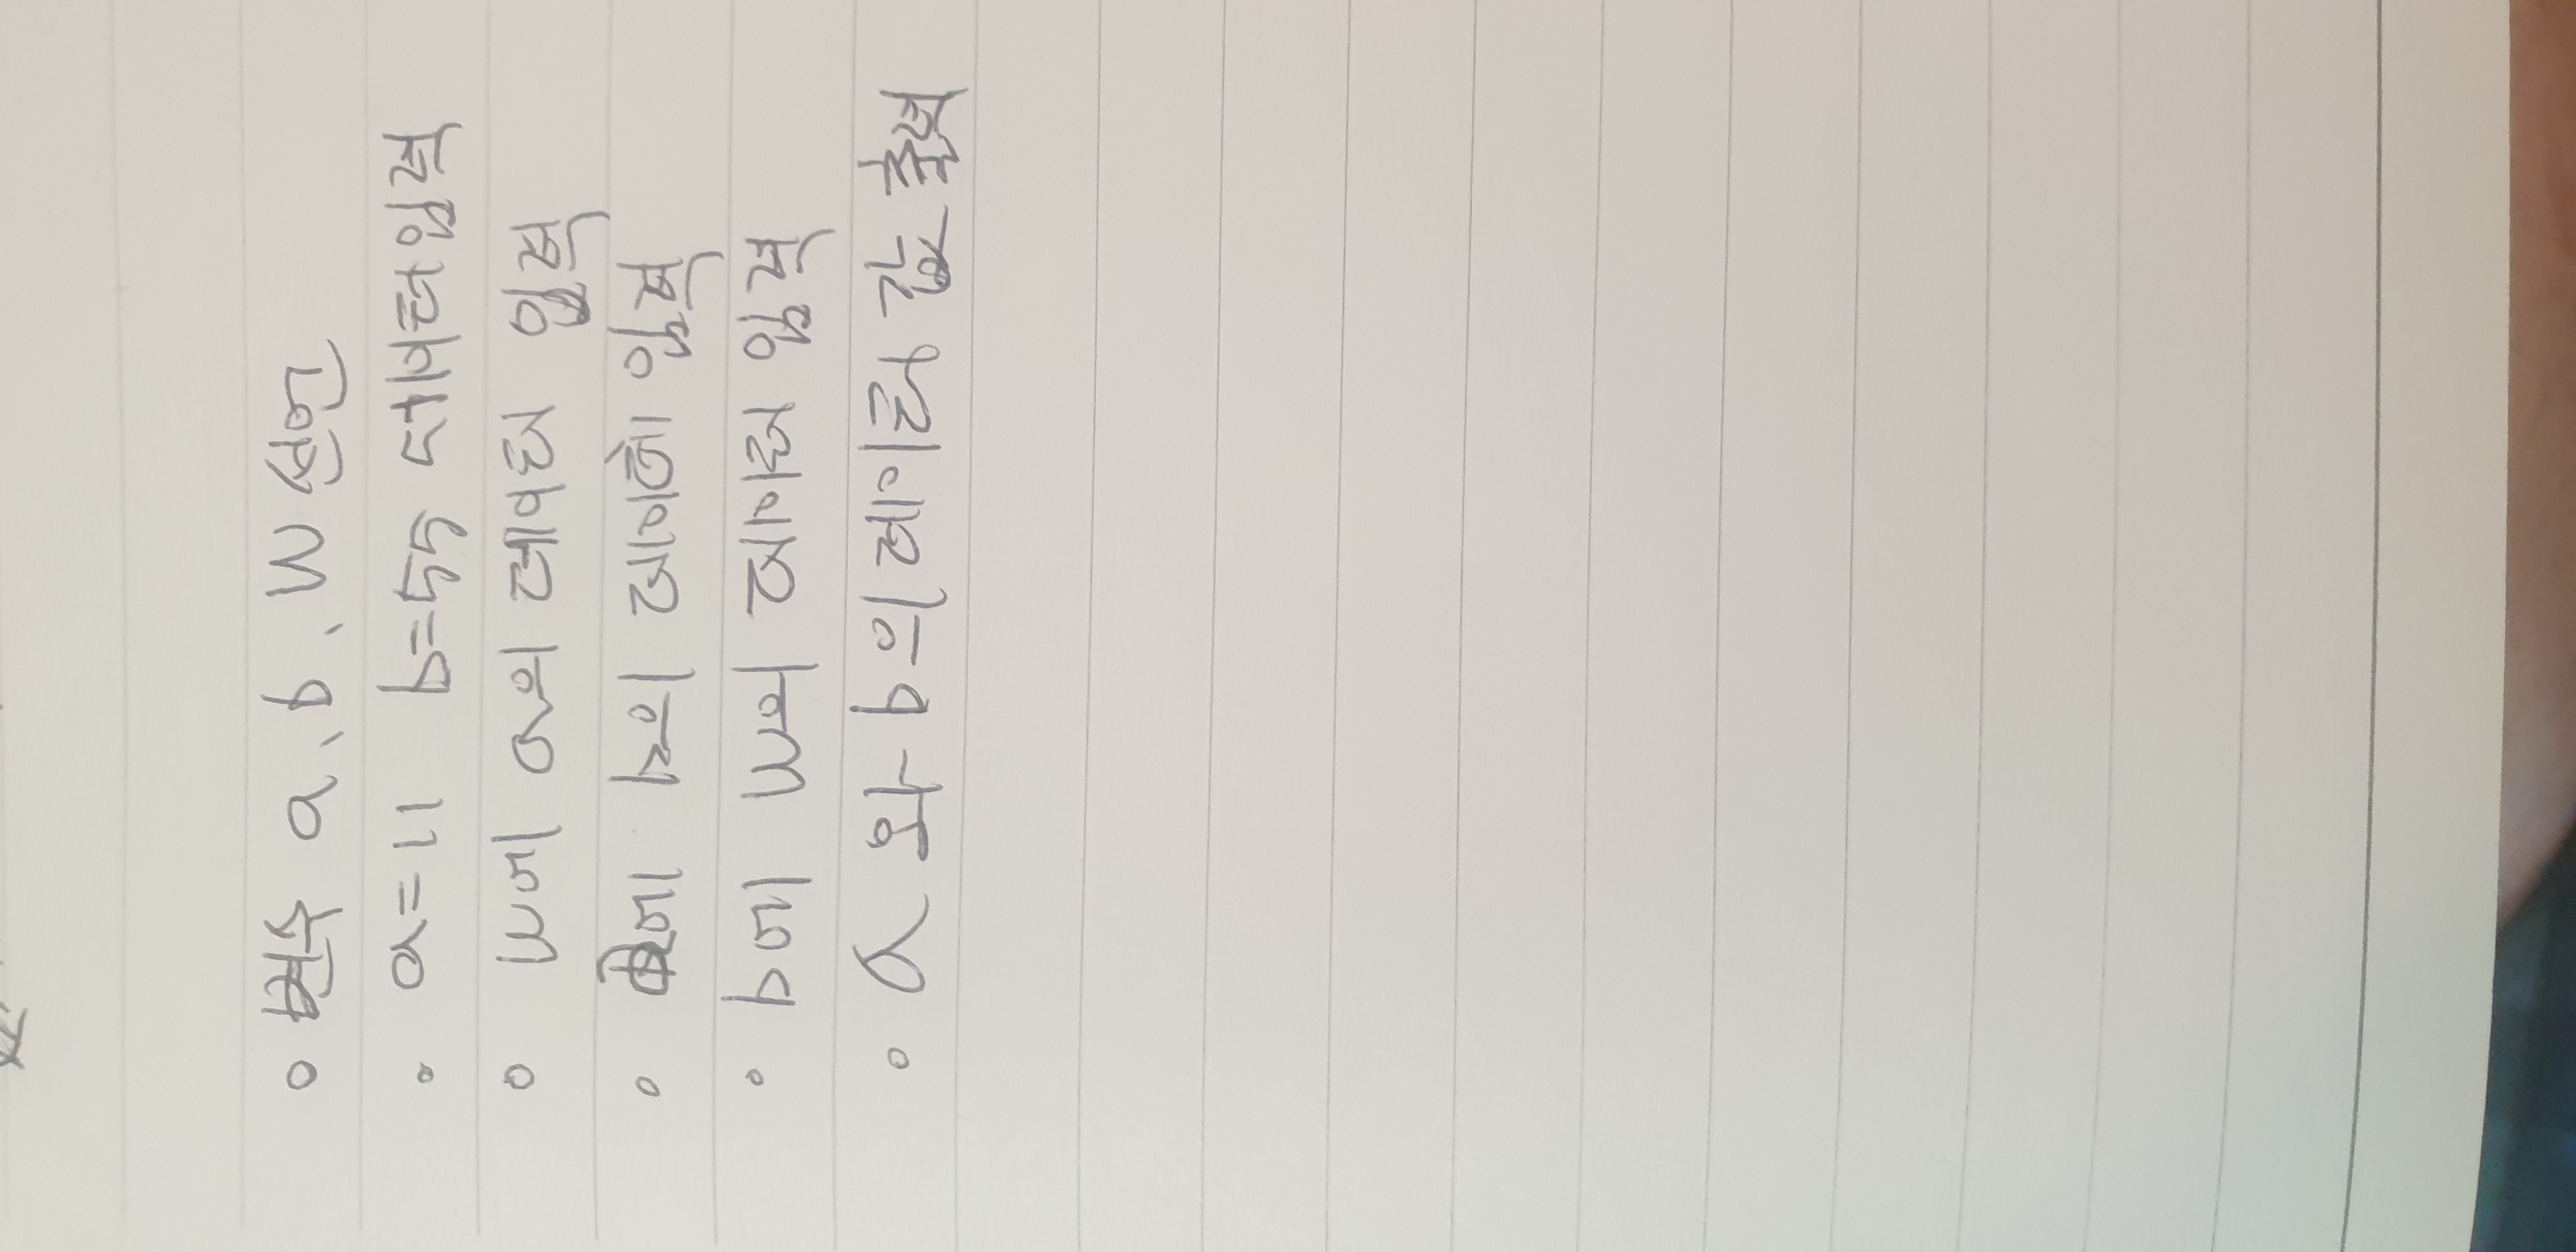 o 변수 a、b、W 선언
o a=11 b=55 데이터입력
o W에 a의 데이터 입력
o a에 b의 데이터 입력
o b에 W의 데이터 입력
o a 와 b의 데이터 값 출력